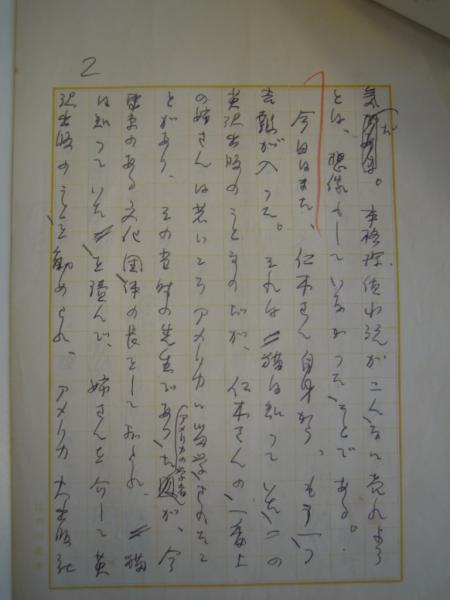 2
気(だ)。本格探偵小説がこんなに売れよう
とは、想像もしていなかったことである。
今日はまた、仁木さん自身から、もう一つ
吉報が入った。それは〃猫は知っていた〃の
英訳出版のことなのだが、仁木さんの、一番上
の姉さんは若いころアメリカに留学されたこ
とがあり、その当時の先生であった(アメリカの学者)が、今
東京のある文化団体の長としておられ、〃猫
は知っていた〃を読んで、姉さんを介して英
訳出版のことを勧められ、アメリカ大出版社